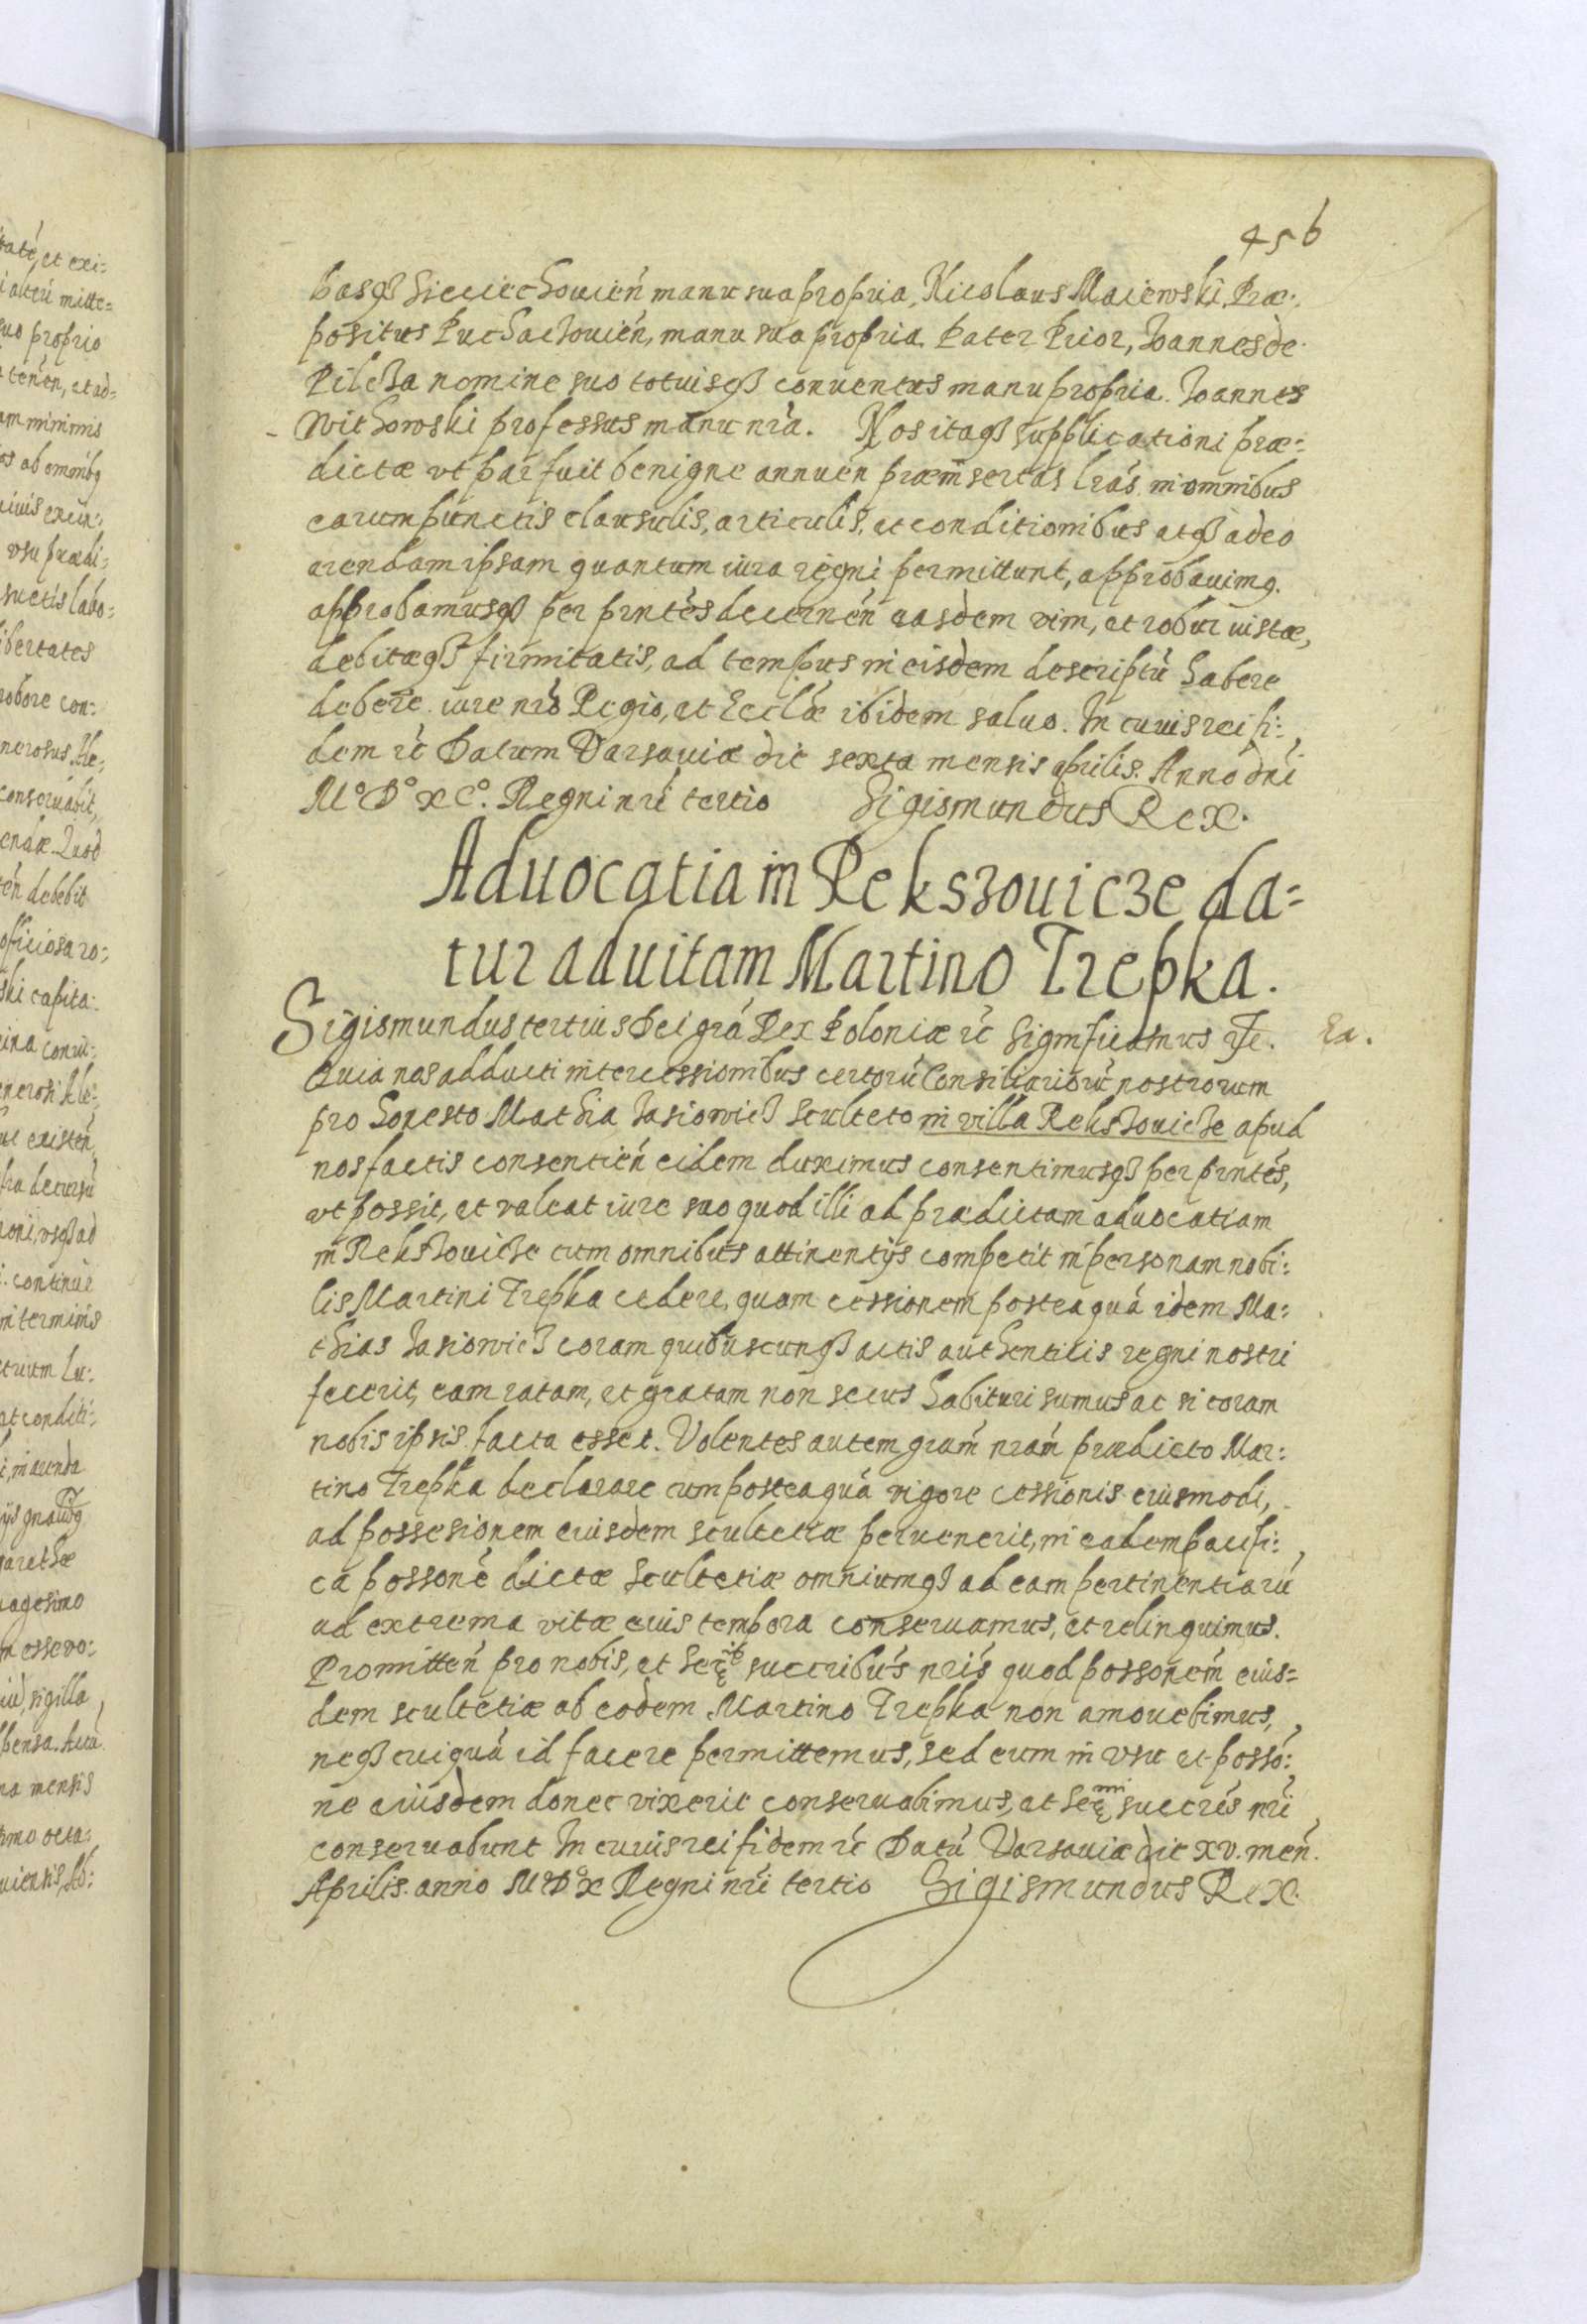 456
basq₃ Sieciechouień manu sua propria, Nicolaus Maiewski Præ:
positus Puchaczouień, manu sua propria. Pater Prior, Joannes de
Pilcza nomine suo totiusq₃ conuentus manu propria. Joannes
Withowski professus manu nrá. Nos itaq₃ supplicationi præ:
dictæ vt par fuit benigne annueń præinsertas lrás in omnibus
earum punctis clausulis, articulis, et conditionibus atq₃ adeo
arendam ipsam quantum iura regni permittunt, approbauimq.
approbamusq₃ per prntes decerneń easdem vim, et robur iustæ,
debitæq₃ firmitatis, ad tempus in eisdem descriptū habere
debere. iure nro Regio, et Ecclæ ibidem saluo. In cuius rei fi:
dem rc̄ Datum Varsauiæ die sexta mensis aprilis. Anno dni
Mº Dº xCº. Regni nri tertio Sigismundus Rex.
Aduocatia in Rekszouicze da=
tur ad uitam Martino Trepka.
Sigismundus tertius Dei grá Rex Poloniæ rc̄ Significamus rc̄. Ex.
Quia nos adducti intercessionibus certorū Consiliariorū nostrorum
pro honesto Mathia Jasiowicz Sculteto in villa Rekszouicze apud
nos factis consentień eidem duximus consentimusq₃ per prntes,
vt possit, et valeat iure suo quod illi ad prædictam aduocatiam
in Rekszouicze cum omnibus attinentijs competit in personam nobi:
lis Martini Trepka cedere, quam cessionem posteaquā idem Ma:
thias Jasiowicz coram quibuscunq₃ actis authenticis regni nostri
fecerit, eam ratam, et gratam non secus habituri sumus ac si coram
nobis ipsis facta esset. Volentes autem gram nram prædicto Mar:
tino Trepka declarare cum posteaquā vigore cessionis eiusmodi,
ad possesionem eiusdem scultetiæ peruenerit, in eadem pacifi:
ca possone dictæ scultetiæ omniumq₃ ad eam pertinentiarū
ad extrema vitæ eius tempora conseruamus, et relinquimus.
Promitteń pro nobis, et Serᵇ succribus nris quod possonem eius=
dem scultetiæ ab eodem Martino Trepka non amouebimus,
neq₃ cuiquā id facere permittemus, sed eum in vsu et posso:
ne eiusdem donec vixerit conseruabimus, et Serᵐⁱ succres nri
conseruabunt In cuius rei fidem rc̄ Datū Varsauiæ die xv. meń.
Aprilis. anno MºDºx Regni nri tertio Sigismundus Rex.